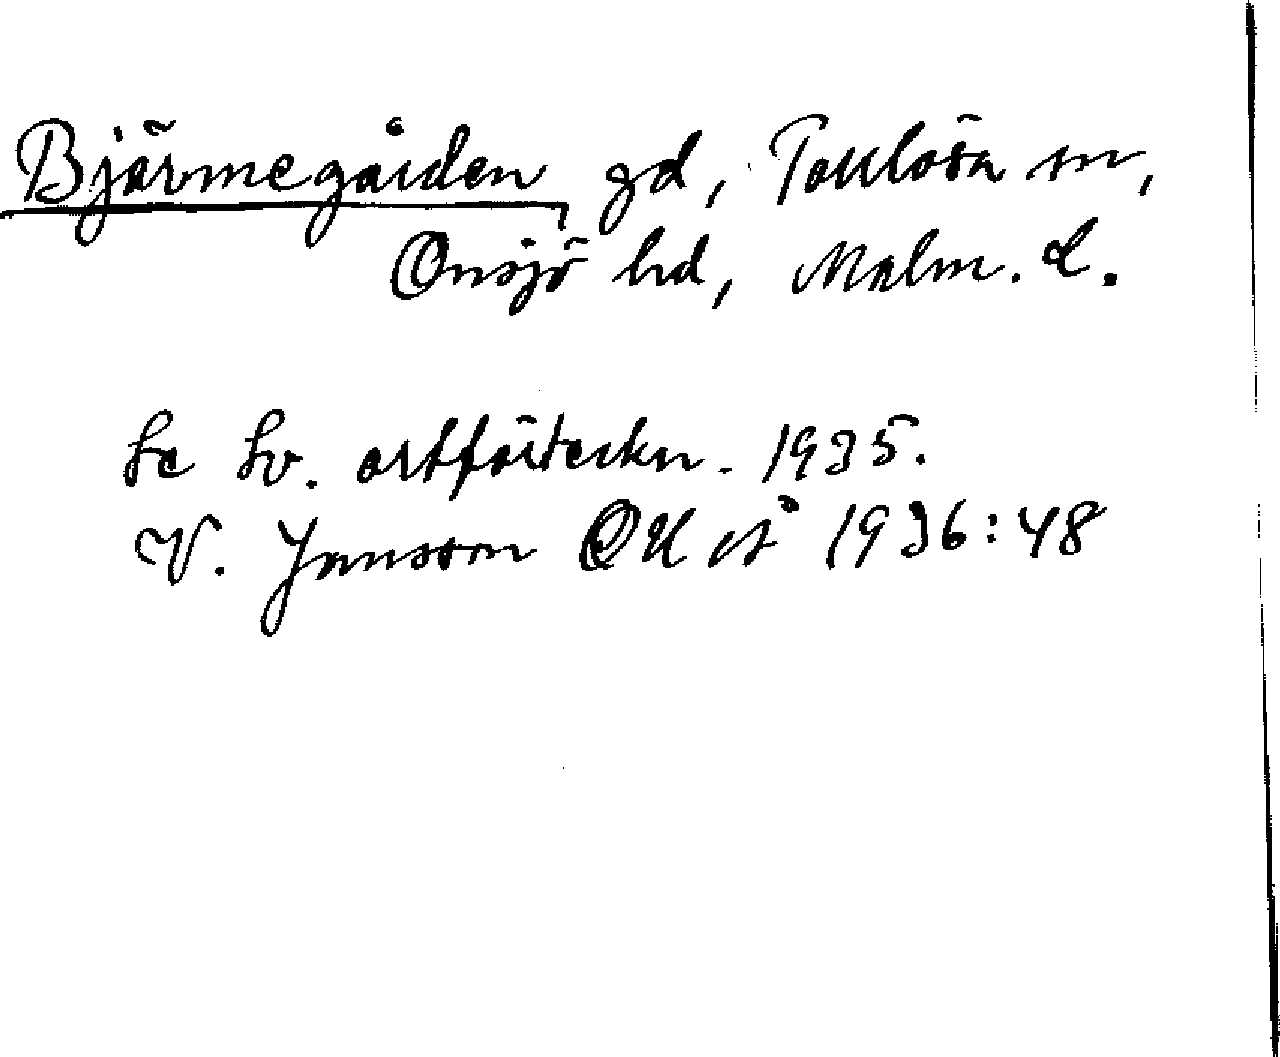 Bjärmegården gd, Torrlösa sn,
Onsjö hd, Malm. L.
Se Sv. ortförteckn. 1935.
V. Jansson OUÅ 1936:48